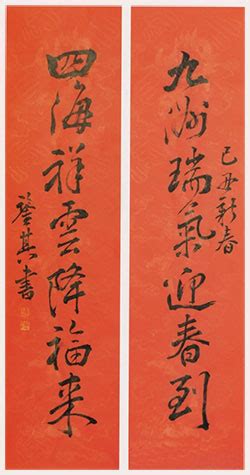 己丑新春
九洲瑞氣迎春到
四海祥雲降福来
啓其書